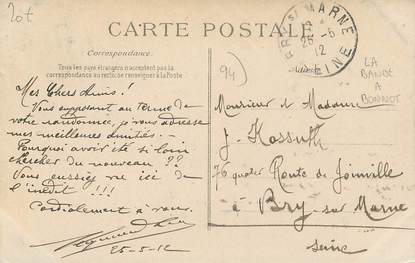 20t
CARTE POSTALE
Correspondance.
Tous les pays étrangers n'acceptent pas la
correspondance au recto, se renseigner à la Poste
Mes Chers Amis!
Vous supposant au terme de
votre randonnée, je vous adresse
mes meilleures amitiés. —
Pourquoi avoir été si loin
chercher du nouveau ??
Vous eussiez eu ici de
l'inédit !!!
Cordialement à vous.
25-5-12
MARNE
25-5
12
SEINE
94)
LA
BANDE
A
BONNOT
Monsieur & Madame
J. Kossuth
76 quater Route de Joinville
à Bry-sur-Marne
Seine